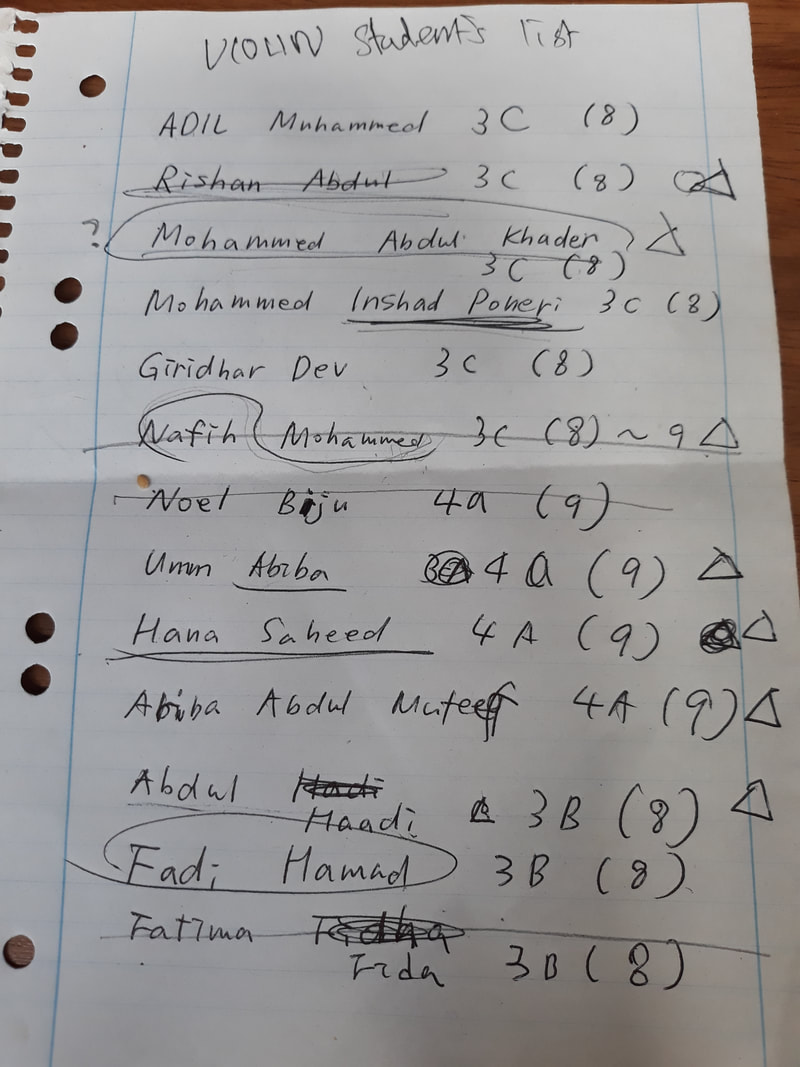 VIOLIN Student's list
ADIL Muhammed 3C (8)
Rishan Abdul 3C (8)
? Mohammed Abdul Khader
3C (8)
Mohammed Inshad Poneri 3C (8)
Giridhar Dev 3C (8)
Nafih Mohammed 3C (8) ~ 9
Noel Biju 4a (9)
Umm Abiba 4a (9)
Hana Saheed 4A (9)
Abiba Abdul Muteef 4A (9)
Abdul Hadi
Haadi 3B (8)
Fadi Hamad 3B (8)
Fatima
Fida 3B (8)